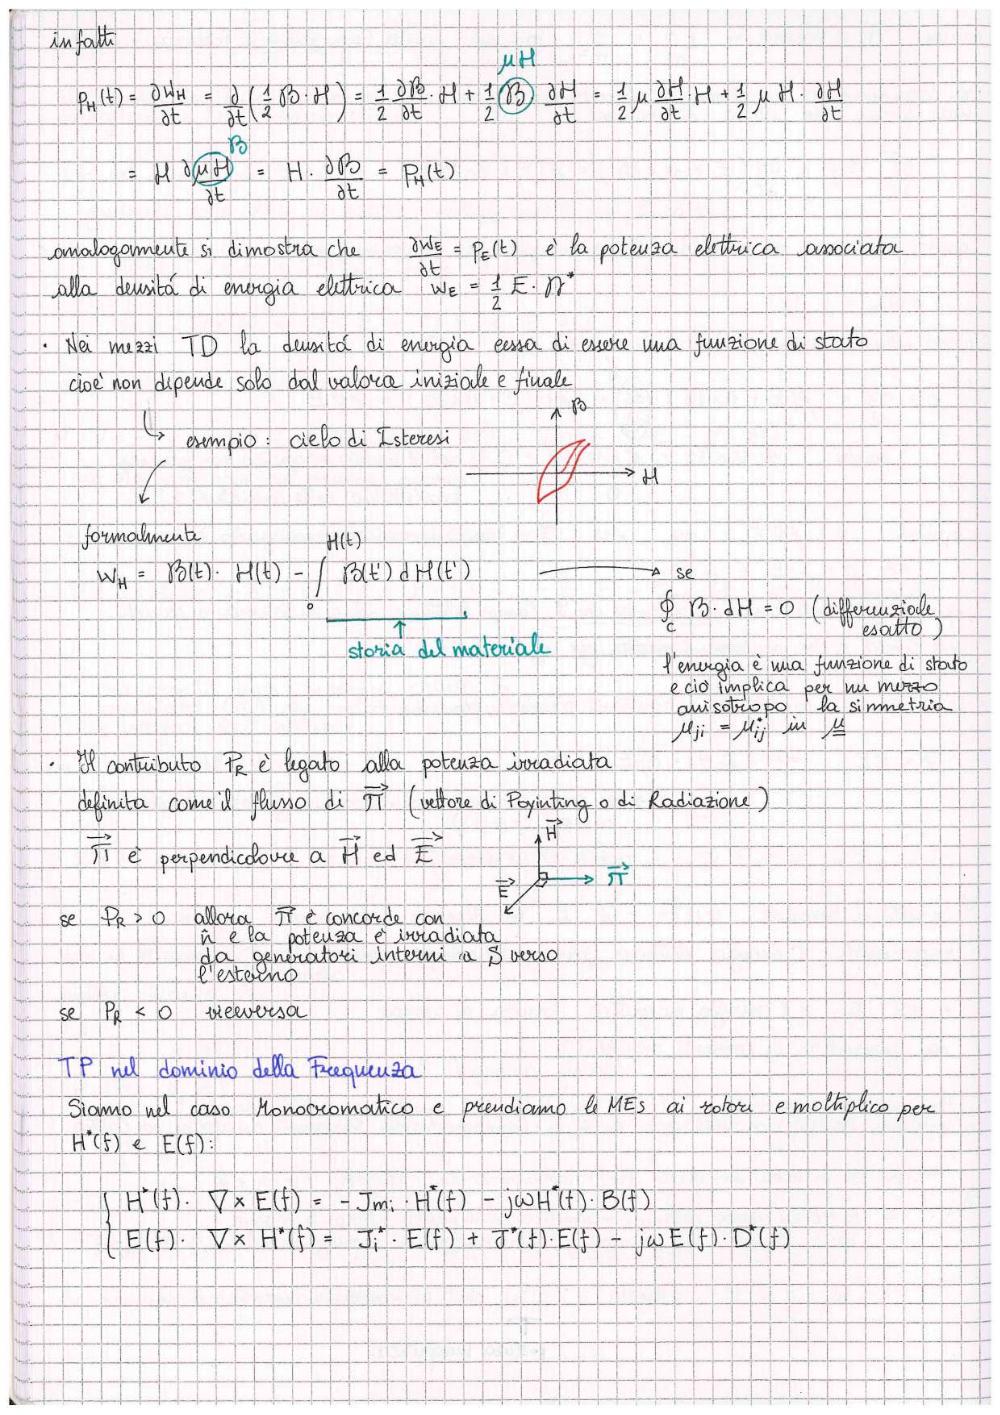 infatti
μH
P_H(t) = ∂W_H/∂t = ∂/∂t (1/2 B · H) = 1/2 ∂B/∂t · H + 1/2 B ∂H/∂t = 1/2 μ ∂H/∂t · H + 1/2 μ H · ∂H/∂t
B
= H ∂μH/∂t = H · ∂B/∂t = P_H(t)
analogamente si dimostra che ∂W_E/∂t = P_E(t) è la potenza elettrica associata
alla densitá di energia elettrica W_E = 1/2 E · D*
· Nei mezzi TD la densitá di energia cessa di essere una funzione di stato
cioè non dipende solo dal valora iniziale e finale
esempio : ciclo di Isteresi
B
H
formalmente
W_H = B(t) · H(t) - ∫_0^{H(t)} B(t') dH(t')
storia del materiale
se
∮_C B · dH = 0 (differenziale
esatto)
l'energia è una funzione di stato
e ciò implica per un mezzo
anisotropo la simmetria
μ_ji = μ*_ij in μ
· Il contributo P_R è legato alla potenza irradiata
definita come il flusso di π⃗ (vettore di Poynting o di Radiazione)
π⃗ è perpendicolare a H⃗ ed E⃗
H⃗
E⃗
π⃗
se P_R > 0 allora π⃗ è concorde con
n̂ e la potenza è irradiata
da generatori interni a S verso
l'esterno
se P_R < 0 viceversa
TP nel dominio della Frequenza
Siamo nel caso Monocromatico e prendiamo le MEs ai rotori e moltiplico per
H*(f) e E(f):
{ H*(f) · ∇ × E(f) = - Jmi · H*(f) - jωH*(f) · B(f)
E(f) · ∇ × H*(f) = Ji* · E(f) + J*(f) · E(f) - jωE(f) · D*(f)